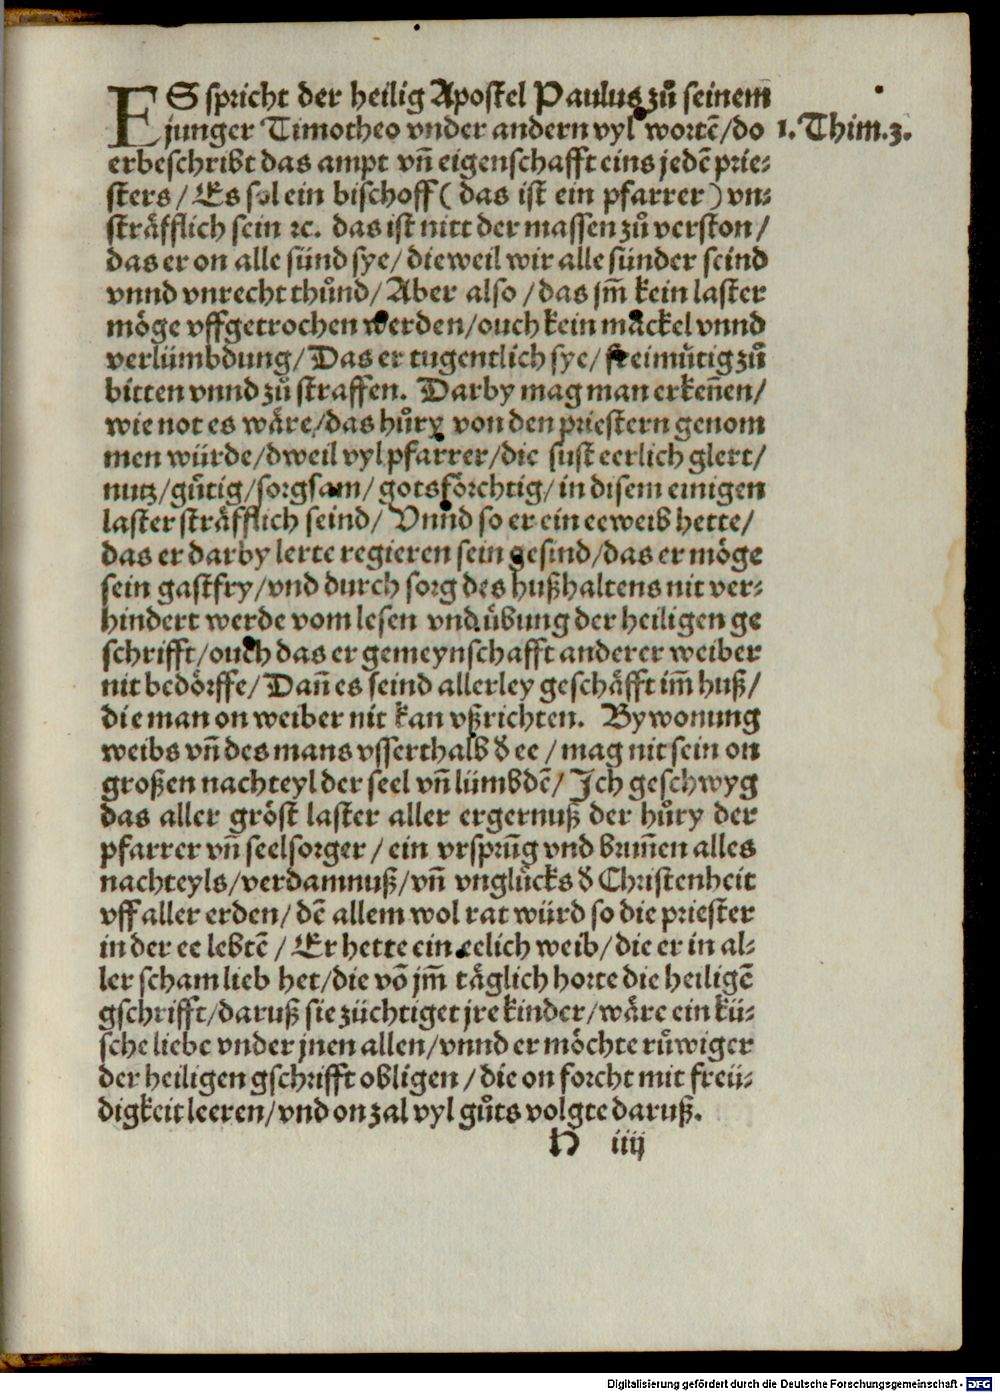 ES spricht der heilig Apostel Paulus zů seinem
junger Timotheo vnder andern vyl wortē/do 1. Thim.3.
erbeschribt das ampt vñ eigenschafft eins jedē prie⸗
sters/ Es sol ein bischoff (das ist ein pfarrer) vn⸗
sträfflich sein ꝛc. das ist nitt der massen zů verston/
das er on alle sünd sye/ dieweil wir alle sünder seind
vnnd vnrecht thůnd/ Aber also/das jm̄ kein laster
möge vffgetrochen werden/ouch kein mackel vnnd
verlümbdung/ Das er tugentlich sye/ freimůtig zů
bitten vnnd zů straffen. Darby mag man erkeñen/
wie not es wäre/das hůry von den priestern genom
men würde/dweil vyl pfarrer/die sust eerlich glert/
nutz/gůtig/sorgsam/ gotsförchtig/in disem einigen
laster sträfflich seind/ Vnnd so er ein eeweib hette/
das er darby lerte regieren sein gesind/das er möge
sein gastfry/vnd durch sorg des hußhaltens nit ver⸗
hindert werde vom lesen vnd übung der heiligen ge
schrifft/ouch das er gemeynschafft anderer weiber
nit bedörffe/ Dañ es seind allerley geschäfft im̄ huß/
die man on weiber nit kan vßrichten. Bywonung
weibs vñ des mans vsserthalb d̄ ee/mag nit sein on
großen nachteyl der seel vñ lümbdē/ Ich geschwyg
das aller gröst laster aller ergernuß der hůry der
pfarrer vñ seelsorger/ein vrsprūg vnd brun̄en alles
nachteyls/verdamnuß/vñ vnglücks d̄ Christenheit
vff aller erden/dē allem wol rat würd so die priester
in der ee lebtē/ Er hette ein eelich weib/die er in al⸗
ler scham lieb het/die vō jm̄ täglich horte die heiligē
gschrifft/daruß sie züchtiget jre kinder/wäre ein kü⸗
sche liebe vnder jnen allen/vnnd er möchte růwiger
der heiligen gschrifft obligen/die on forcht mit freü⸗
digkeit leeren/vnd on zal vyl gůts volgte daruß.
H iiij
Digitalisierung gefördert durch die Deutsche Forschungsgemeinschaft - DFG